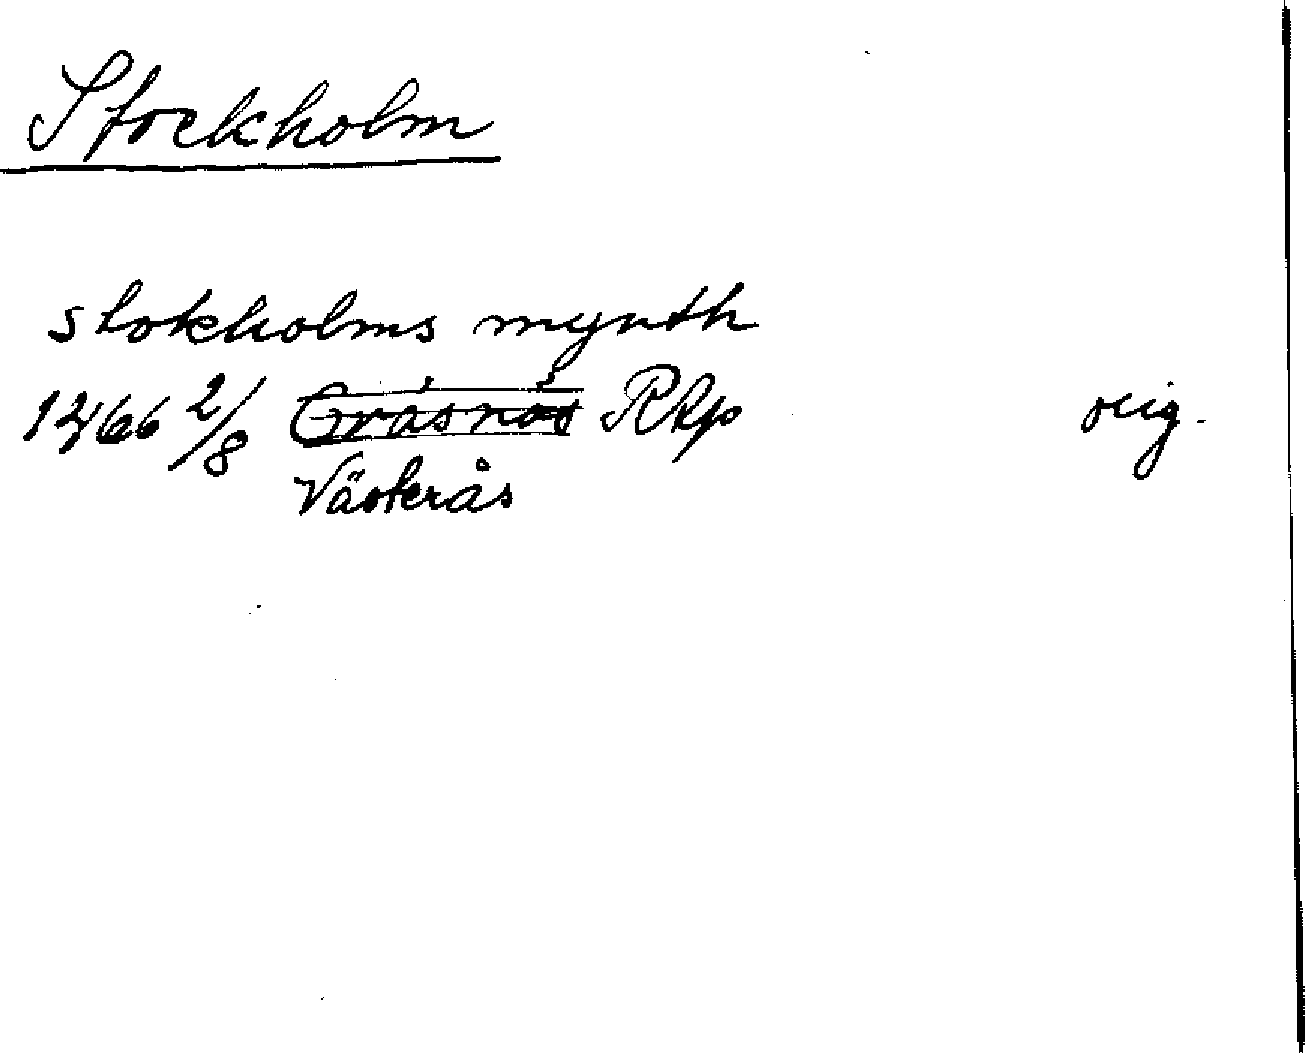 Stockholm
stokholms mynth
1466 2/8 Gräsnäs RAp orig.
Västerås